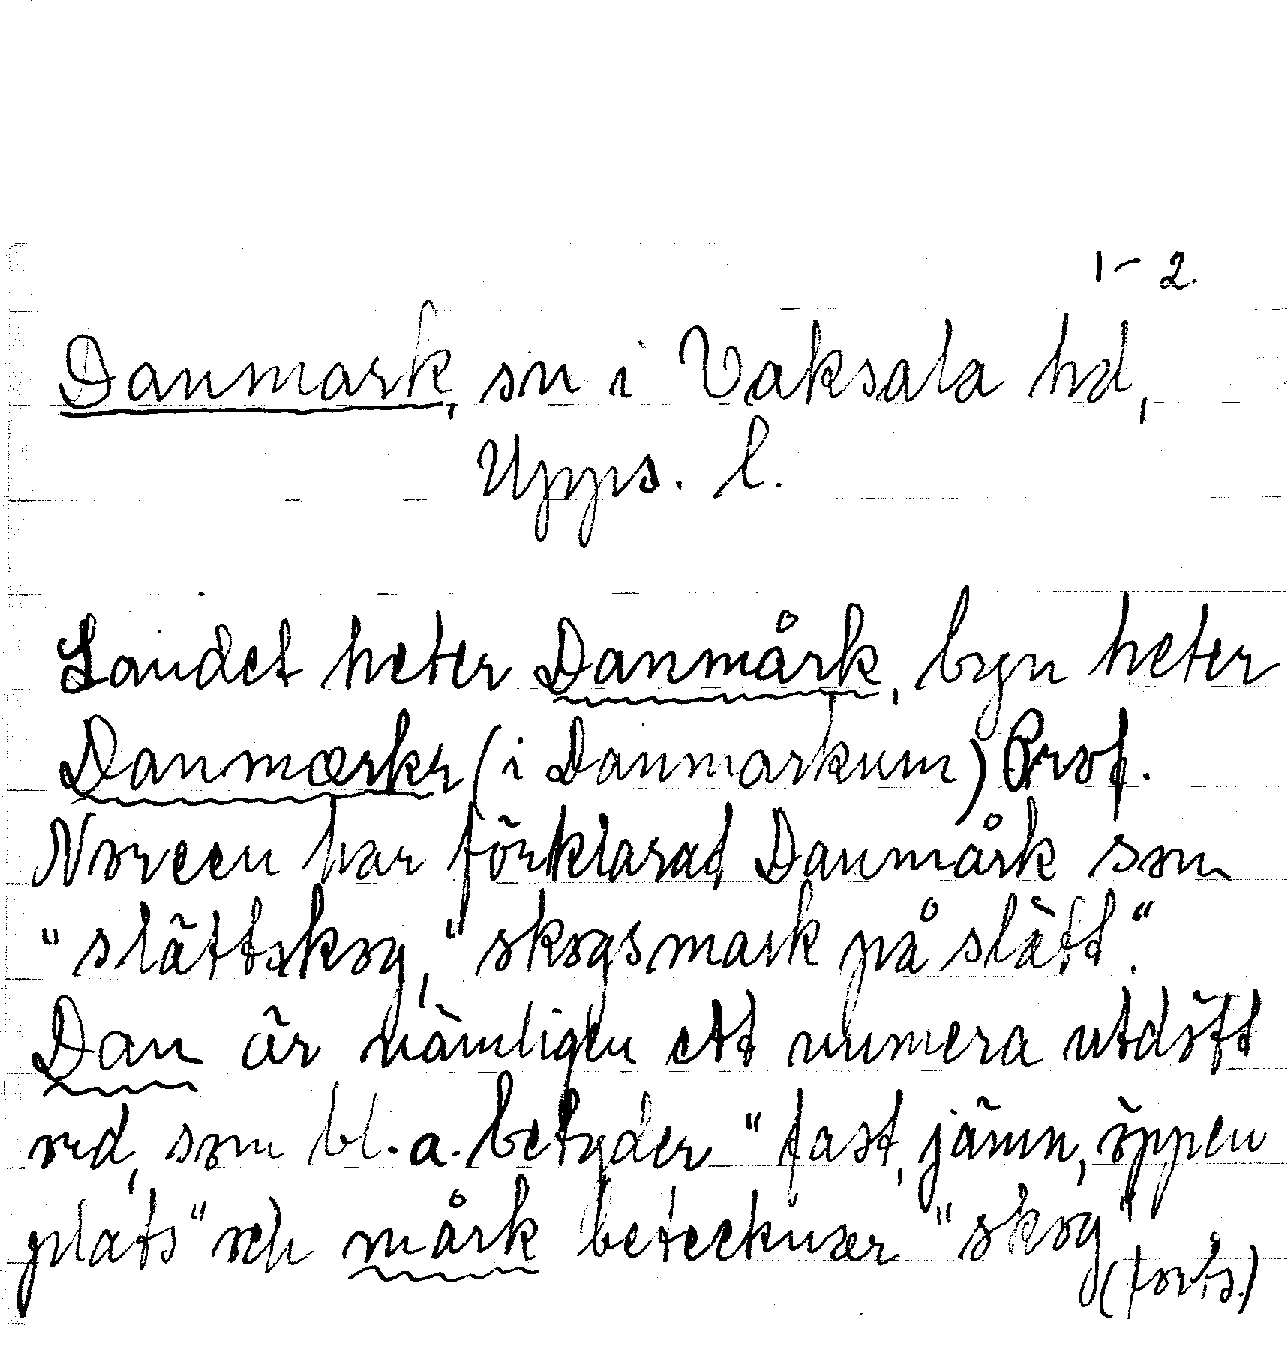 1-2.
Danmark, sn i Vaksala hd,
Upps. l.
Landet heter Danmårk, byn heter
Danmærkr (i Danmarkum) Prof.
Noreen har förklarat Danmårk som
"slättskog," skogsmark på slätt".
Dan är nämligen ett numera utdött
ord, som bl.a. betyder "fast, jämn, öppen
plats" och mårk betecknar "skog"
(forts.)